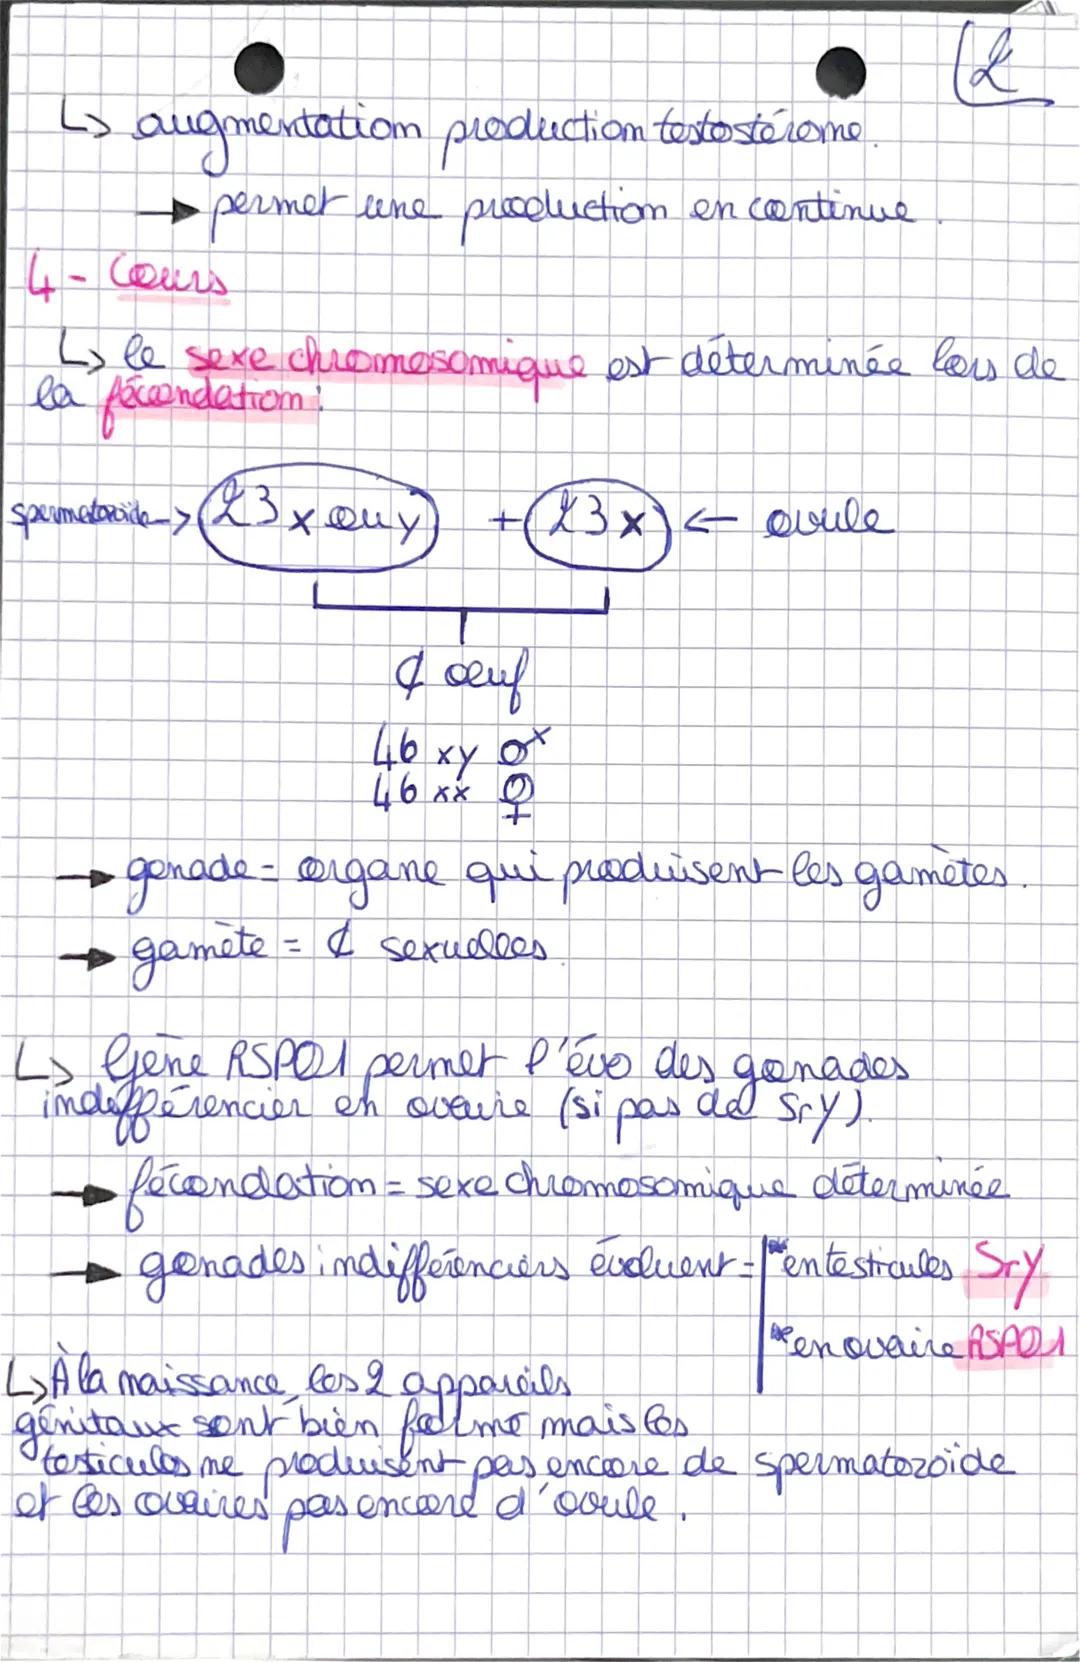 2
↳ augmentation production testostérone.
→ permet une production en continue.
4 - Cours
↳ le sexe chromosomique est déterminée lors de
la fécondation :
spermatozoïde → 23 x ou y + 23 x ← ovule
¢ oeuf
46 xy ♂
46 xx ♀
→ gonade = organe qui produisent les gamètes.
→ gamète = ¢ sexuelles.
↳ Gène RSPO1 permet l'évo des gonades
indifférencier en ovaire (si pas de SrY).
→ fécondation = sexe chromosomique déterminée
→ gonades indifférenciers évoluent = * en testicules SrY
* en ovaire RSPO1
↳ À la naissance, les 2 appareils
génitaux sont bien formé mais les
testicules ne produisent pas encore de spermatozoïde
et les ovaires pas encore d'ovule.